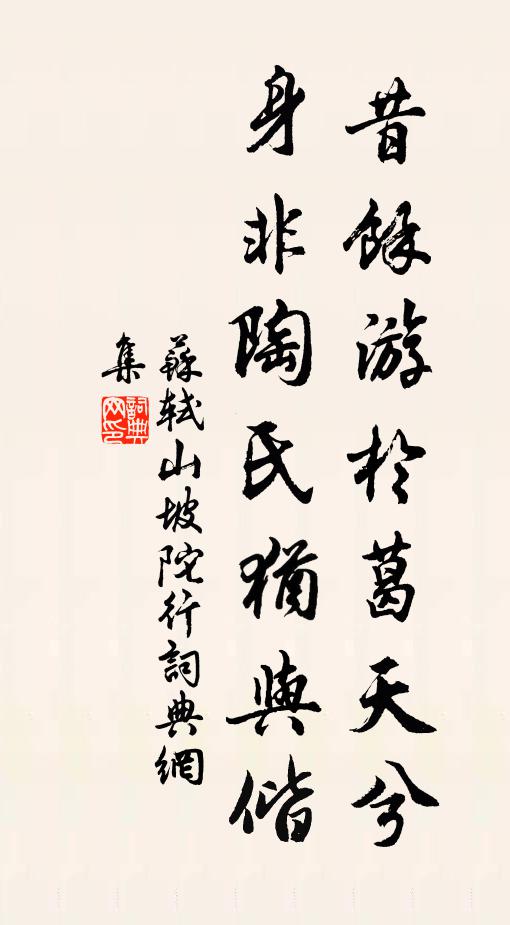 昔餘游於葛天兮
身非陶氏猶與偕
蘇軾山坡陀行詞典網
集
詞典
网印